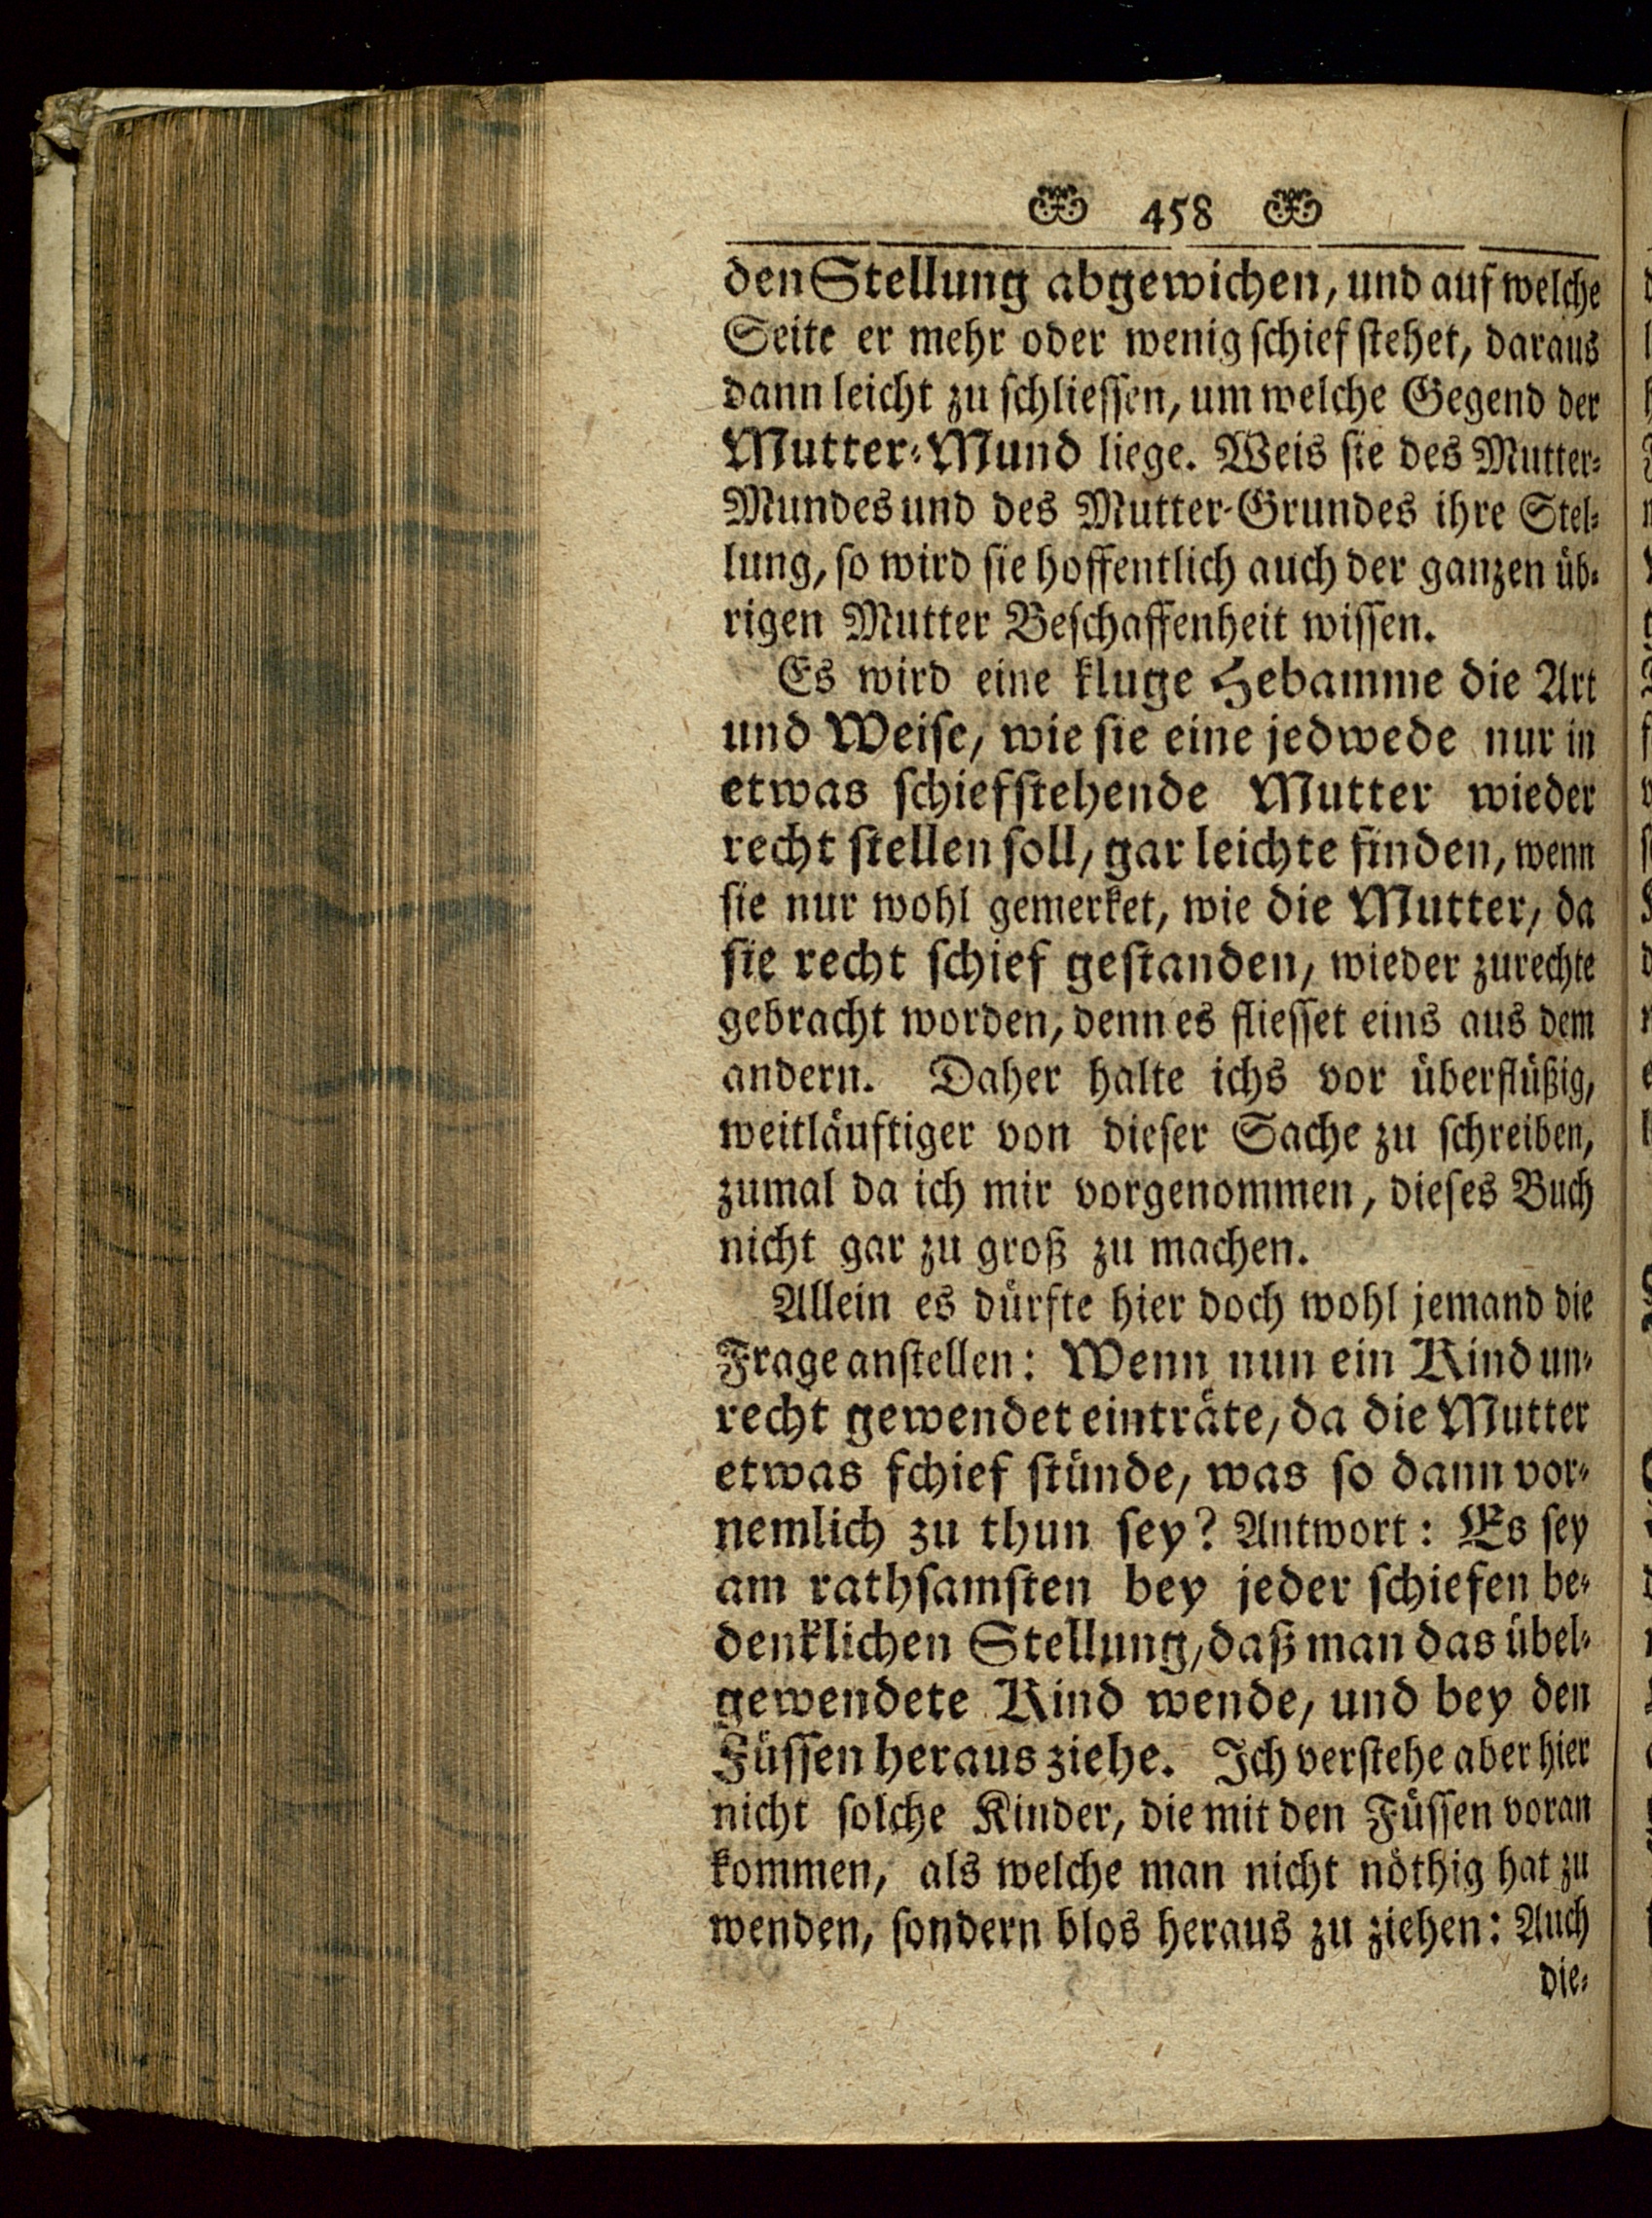 458
den Stellung abgewichen, und auf welche
Seite er mehr oder wenig schief stehet, daraus
dann leicht zu schliessen, um welche Gegend der
Mutter-Mund liege. Weis sie des Mutter-
Mundes und des Mutter-Grundes ihre Stel-
lung, so wird sie hoffentlich auch der ganzen üb-
rigen Mutter Beschaffenheit wissen.
Es wird eine kluge Hebamme die Art
und Weise, wie sie eine jedwede nur in
etwas schiefstehende Mutter wieder
recht stellen soll, gar leichte finden, wenn
sie nur wohl gemerket, wie die Mutter, da
sie recht schief gestanden, wieder zurechte
gebracht worden, denn es fliesset eins aus dem
andern. Daher halte ichs vor überflüßig,
weitläuftiger von dieser Sache zu schreiben,
zumal da ich mir vorgenommen, dieses Buch
nicht gar zu groß zu machen.
Allein es dürfte hier doch wohl jemand die
Frage anstellen: Wenn nun ein Kind un-
recht gewendet einträte, da die Mutter
etwas schief stünde, was so dann vor-
nemlich zu thun sey? Antwort: Es sey
am rathsamsten bey jeder schiefen be-
denklichen Stellung, daß man das übel-
gewendete Kind wende, und bey den
Füssen heraus ziehe. Ich verstehe aber hier
nicht solche Kinder, die mit den Füssen voran
kommen, als welche man nicht nöthig hat zu
wenden, sondern blos heraus zu ziehen: Auch
die-